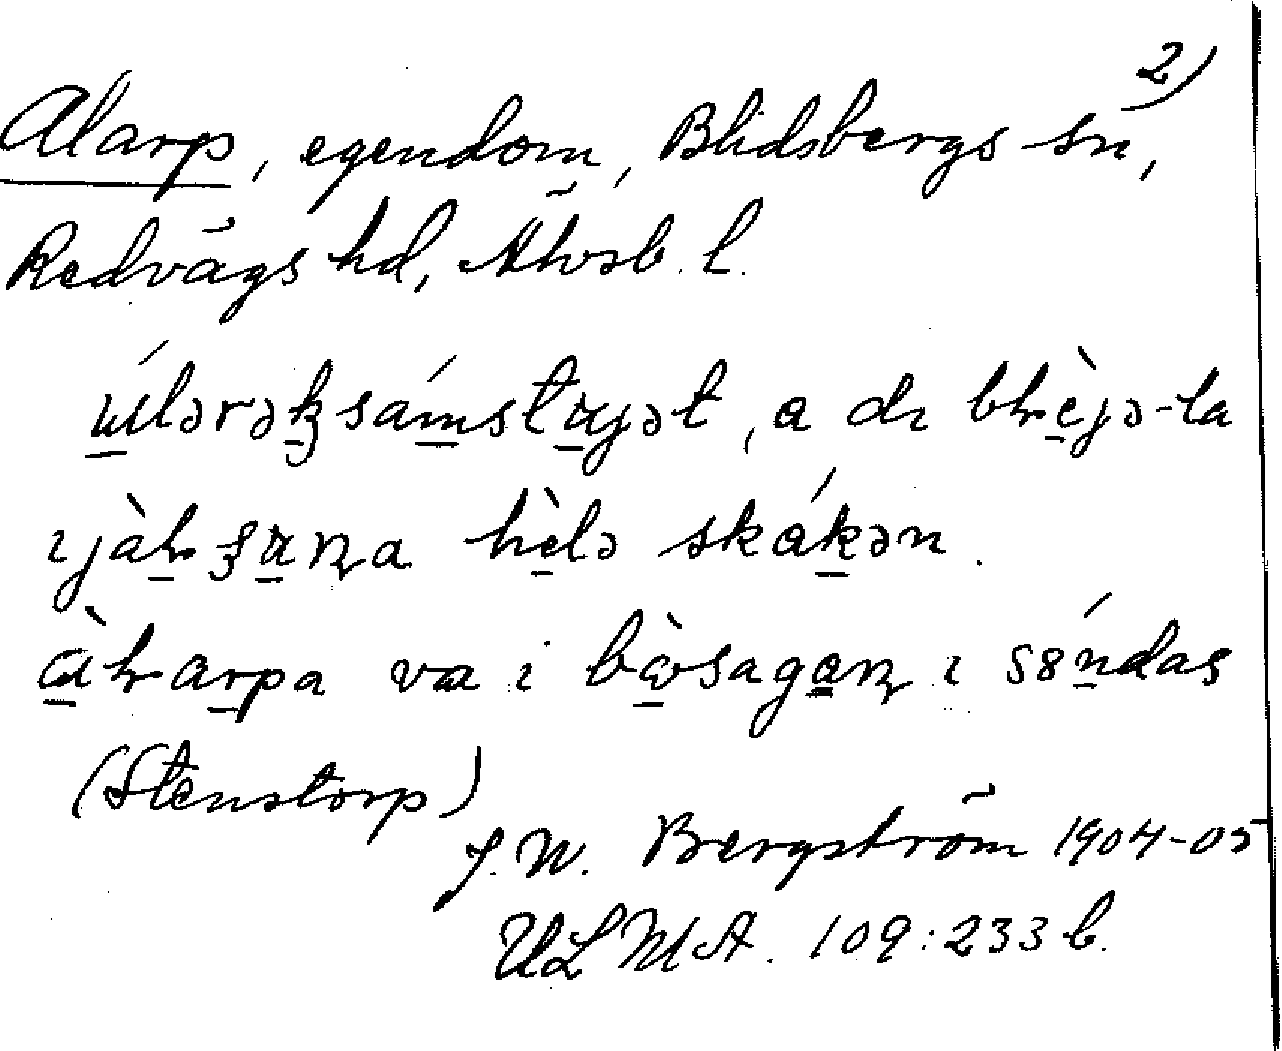 2)
Alarp, egendom, Blidsbergs sn,
Redvägs hd, Älvsb. l.
úlərəksámstujət, a dɪ bƚèjə-la
ɪjàƚ sʉɳa hèlə skákən.
àƚarpa va i bòsagaɳ ɪ söndas
(Stenstorp)
J. W. Bergström 1904-05
ULMA. 109:233 b.